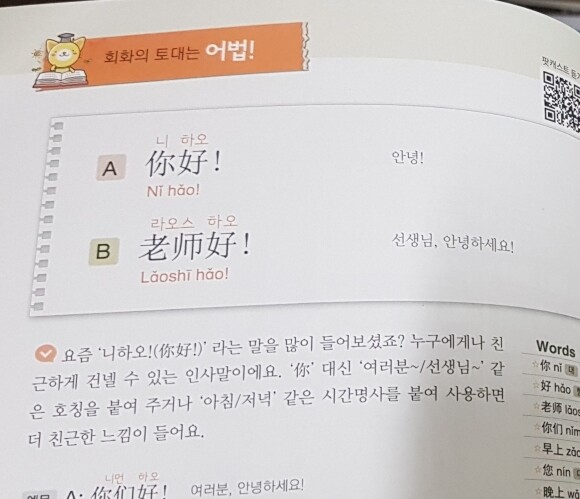 회화의 토대는 어법!
팟캐스트 듣기
니 하오
A 你好! 안녕!
Nǐ hǎo!
라오스 하오
B 老师好! 선생님, 안녕하세요!
Lǎoshī hǎo!
요즘 ‘니하오!(你好!)’ 라는 말을 많이 들어보셨죠? 누구에게나 친
근하게 건넬 수 있는 인사말이에요. ‘你’ 대신 ‘여러분~/선생님~’ 같
은 호칭을 붙여 주거나 ‘아침/저녁’ 같은 시간명사를 붙여 사용하면
더 친근한 느낌이 들어요.
Words
☆你 nǐ 대
☆好 hǎo
☆老师 lǎos
☆你们 nǐm
☆早上 zǎo
☆您 nín
☆晚上 wǎ
니먼 하오
예문 A: 你们好! 여러분, 안녕하세요!